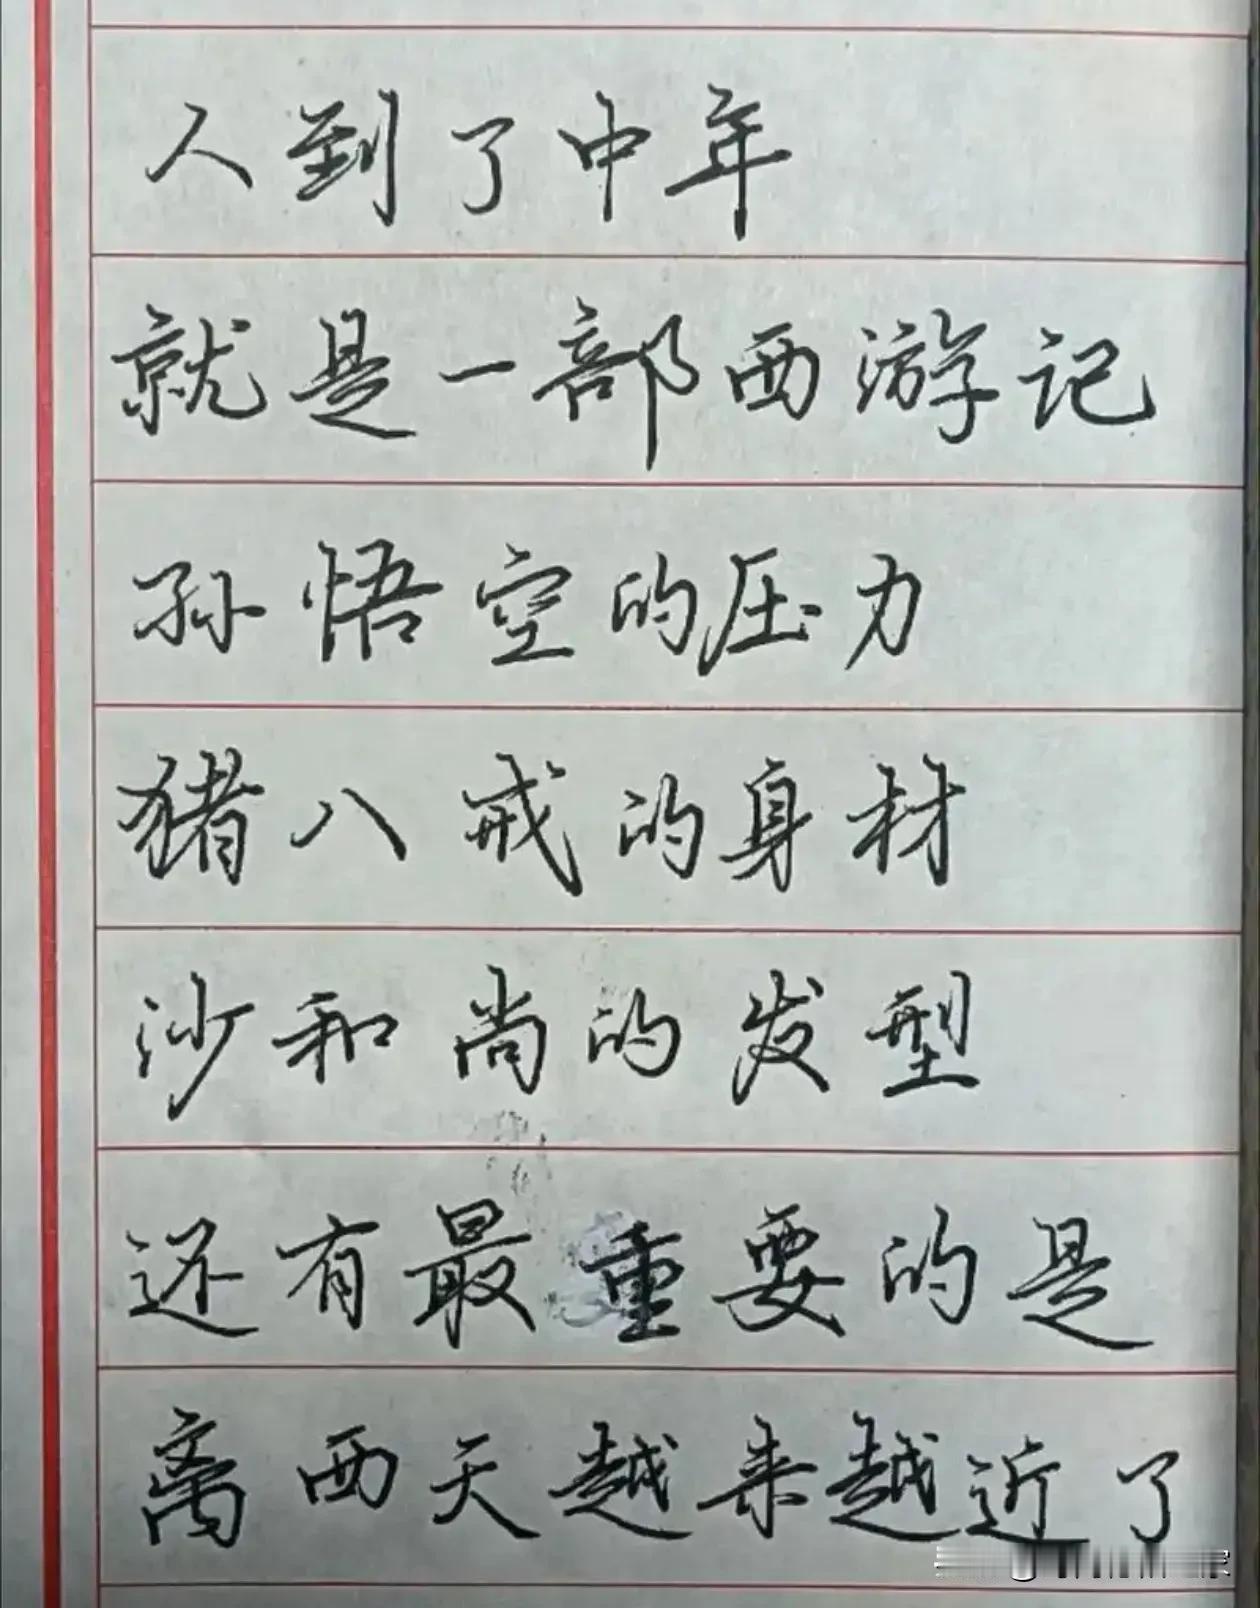 人到了中年
就是一部西游记
孙悟空的压力
猪八戒的身材
沙和尚的发型
还有最重要的是
离西天越来越近了